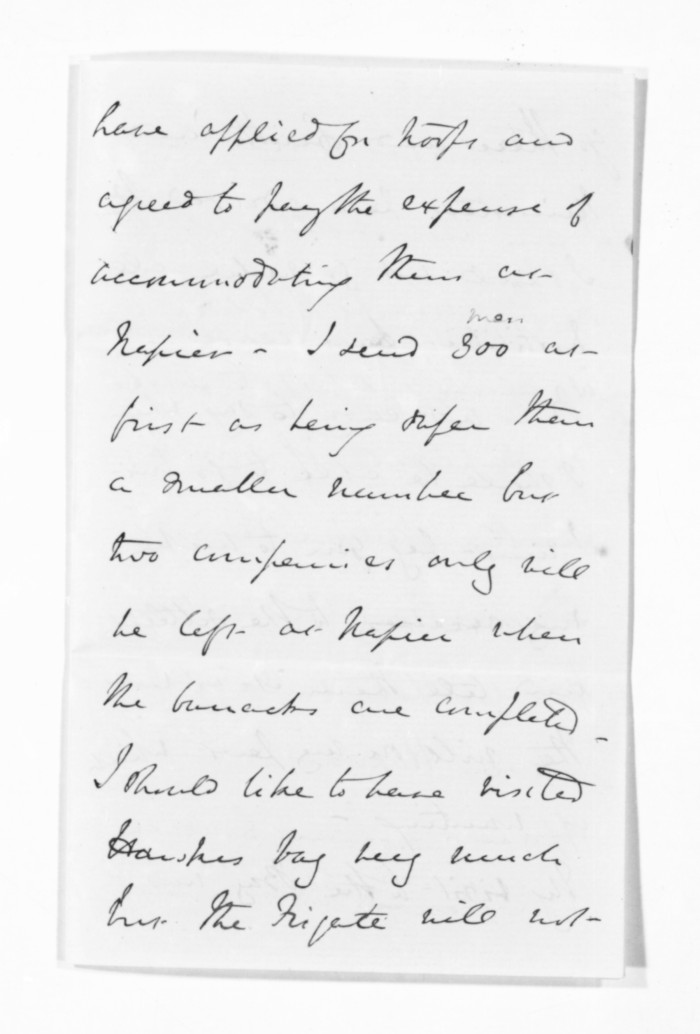 have applied for troops and
agreed to pay the expense of
accommodating them at
men
Napier - I send 300 at
first as being safer than
a smaller number but
two companies only will
be left at Napier when
the barracks are completed -
I should like to have visited
Hawkes bay very much
but the Frigate will not